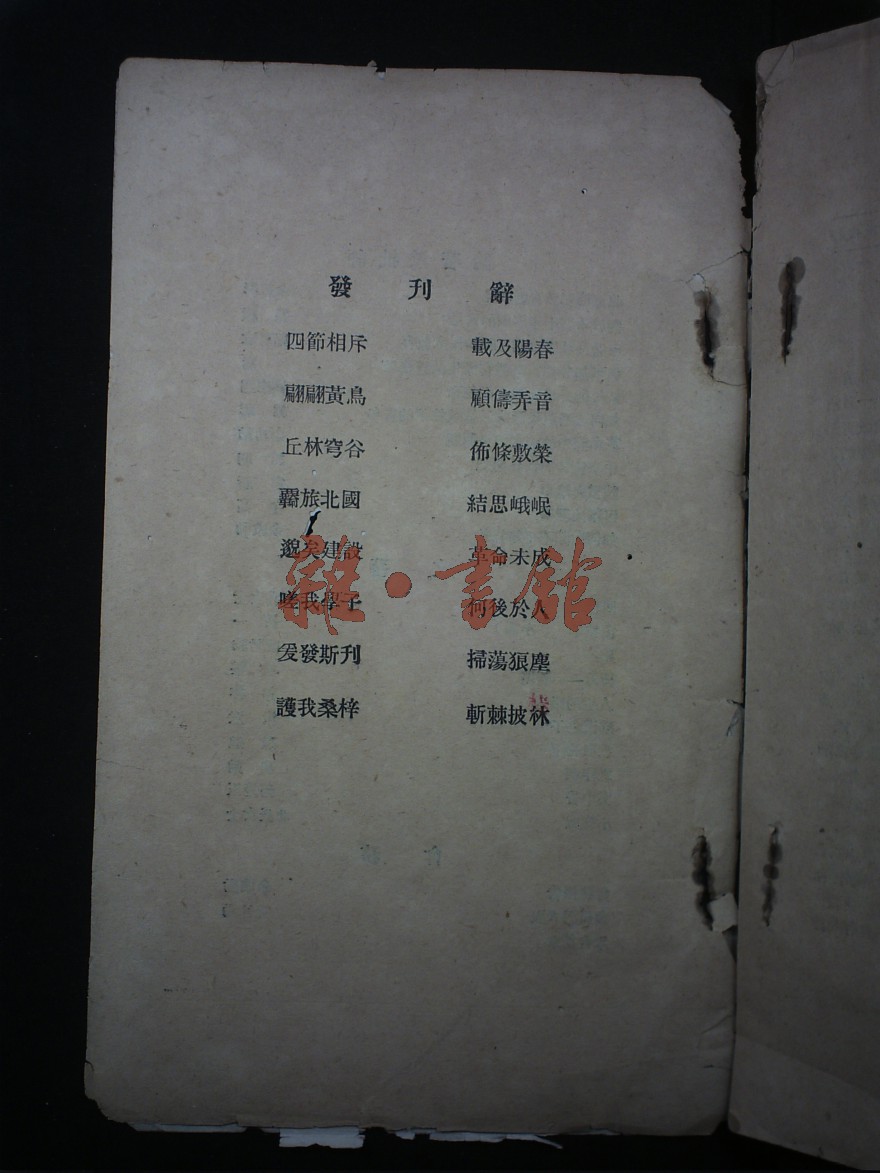 發刊辭
四節相斥 載及陽春
翩翩黃鳥 顧儔弄音
丘林穹谷 佈條敷榮
羈旅北國 結思峨岷
邈矣建設 革命未成
嗟我學子 何後於人
爰發斯刋 掃蕩狼塵
護我桑梓 斬棘披
雜·書舘